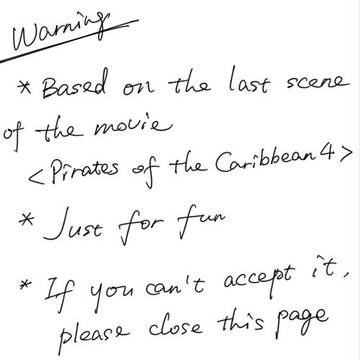 Warning
* Based on the last scene
of the movie
<Pirates of the Caribbean 4>
* Just for fun
* If you can't accept it,
please close this page